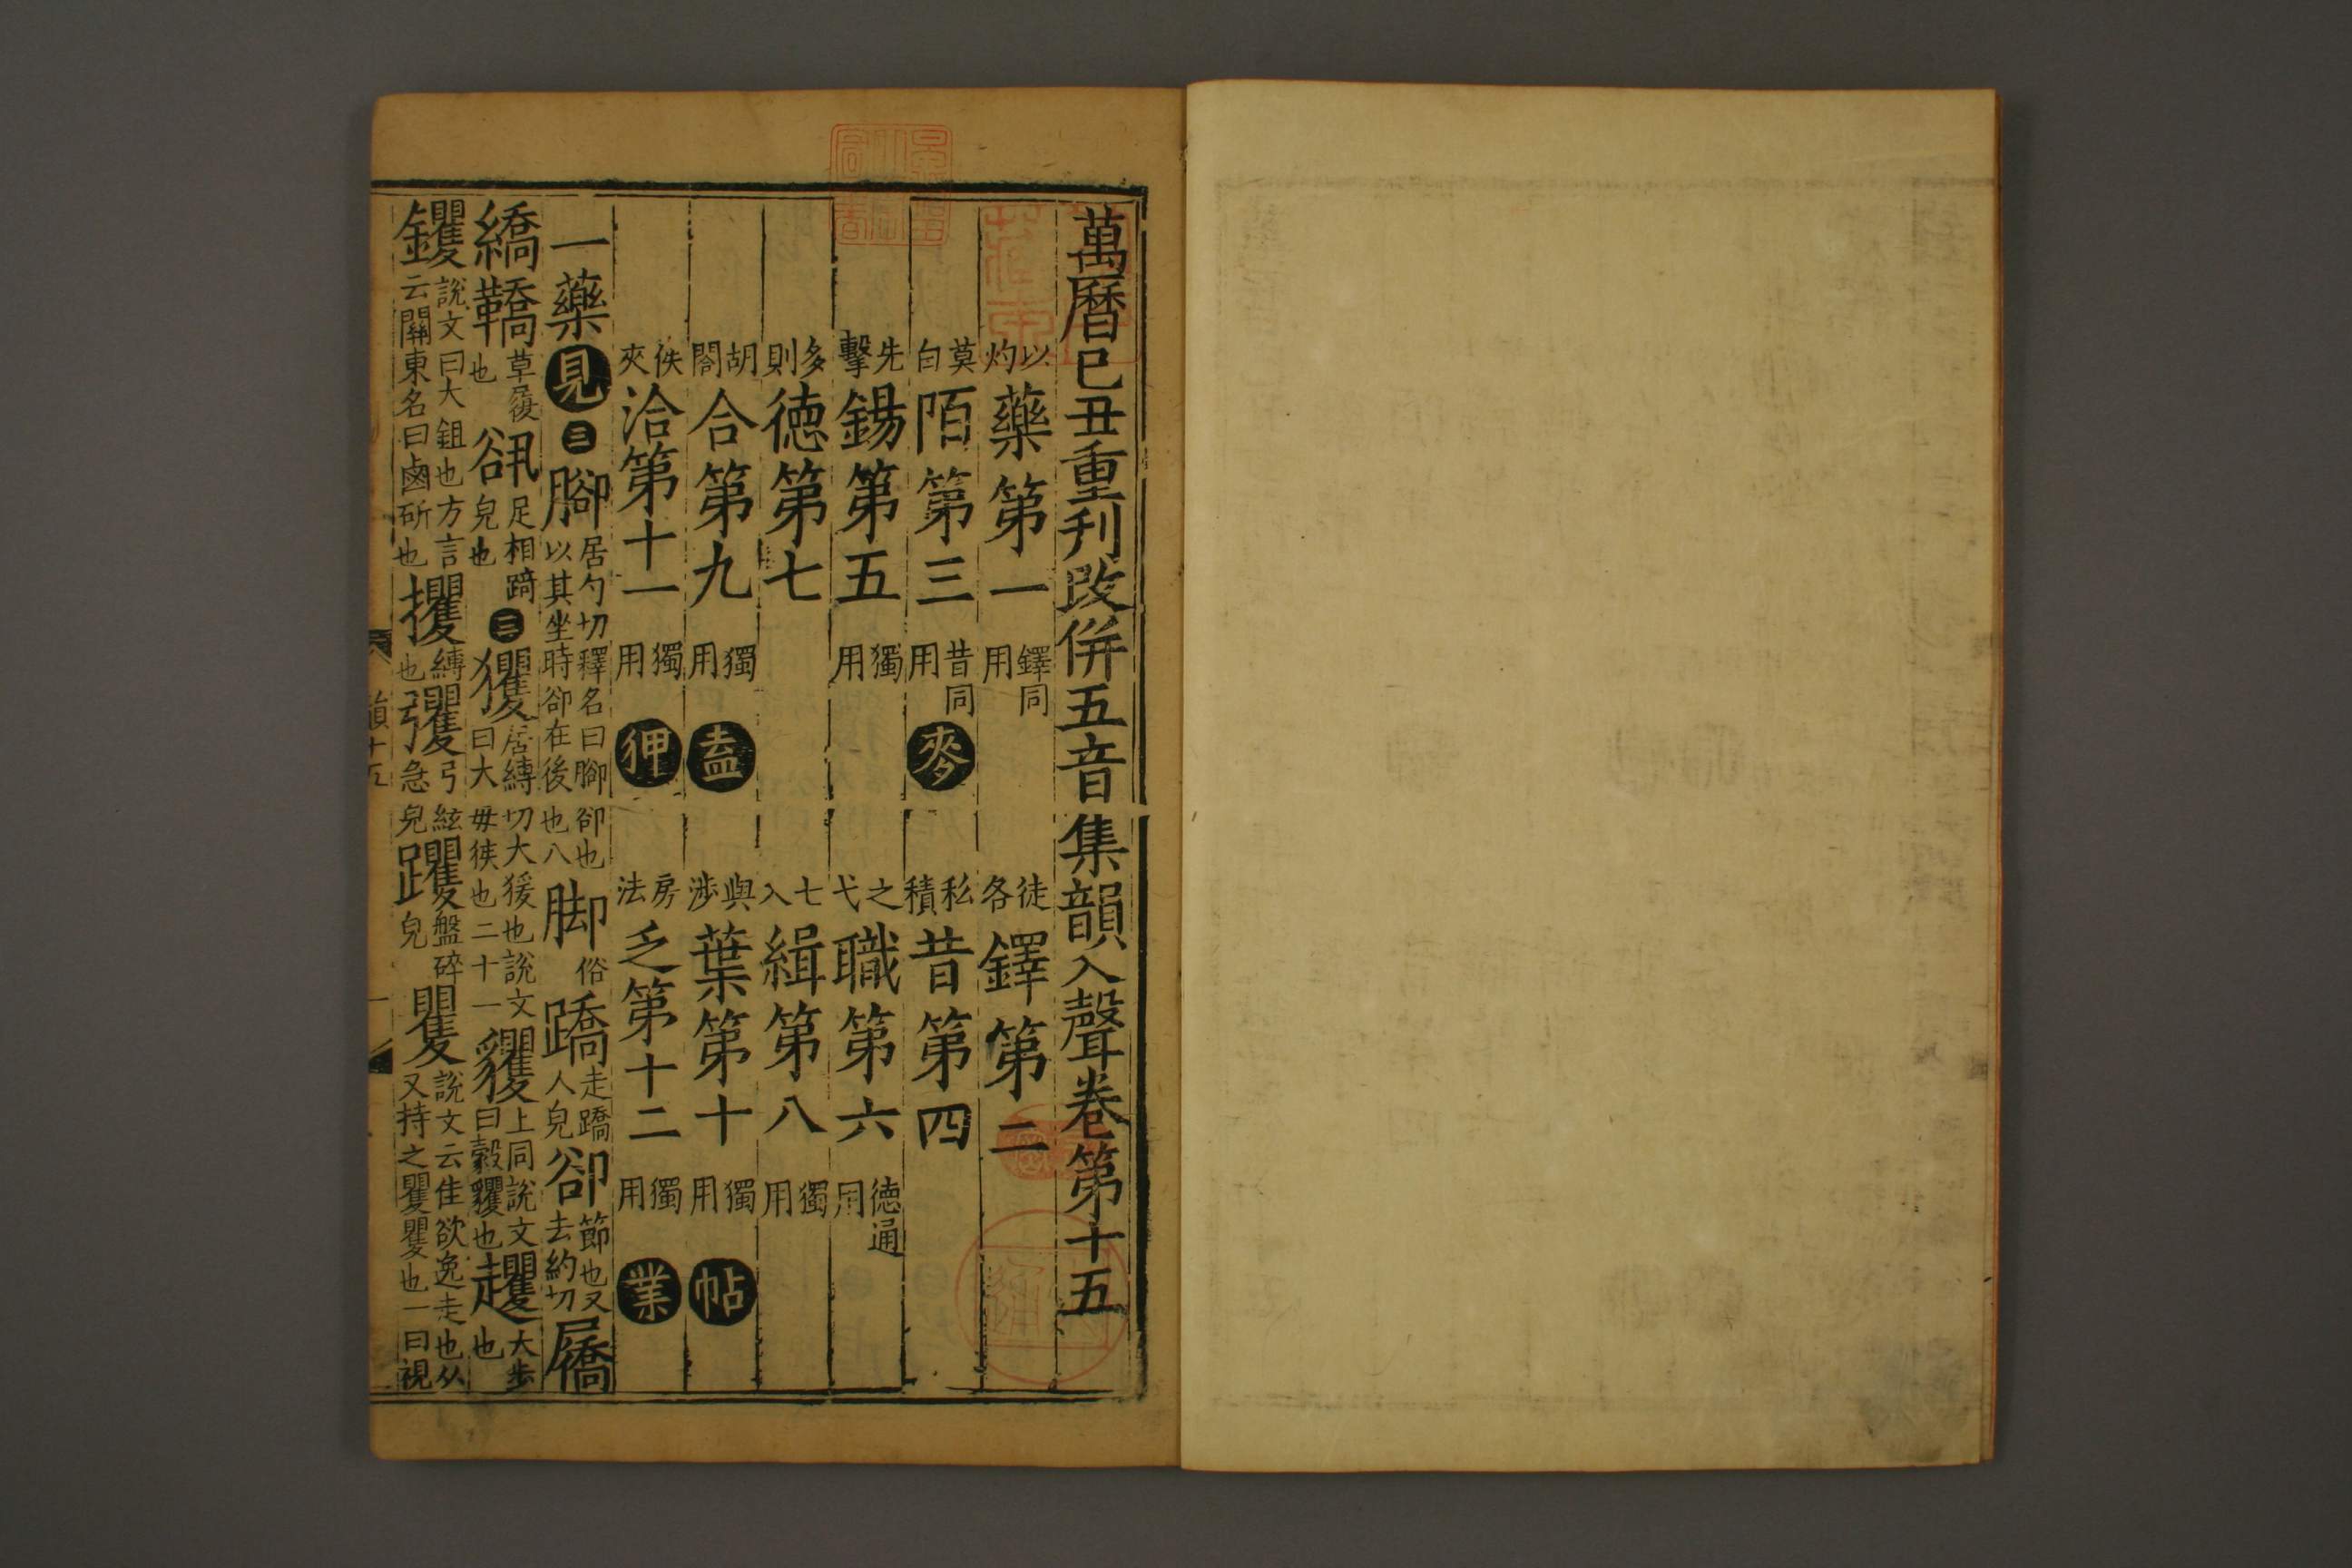 萬曆己丑重刊改併五音集韻入聲卷第十五
以灼藥第一 鐸同用 徒各鐸第二
莫白陌第三 昔同用 麥 私積昔第四
先擊錫第五 獨用 之弋職第六 德通用
多則德第七 七入緝第八 獨用
胡閤合第九 獨用 盍 與涉葉第十 獨用 帖
侠夾洽第十一 獨用 狎 房法乏第十二 獨用 業
一藥見三腳居勺切釋名曰腳卻也以其坐時卻在後也八脚俗蹻走蹻人皃卻節也又去約切屩
繑鞽草履也𧮬足相踦皃也三玃居縛切大猨也說文曰大母猴也二十一貜上同說文曰㲉貜也趯大步也
钁說文曰大鉏也方言云關東名曰鹵斫也攫縛也彏弓絃急皃躩盤碎皃矍說文云隹欲逸走也从又持之矍矍也一曰視
韻十五 一